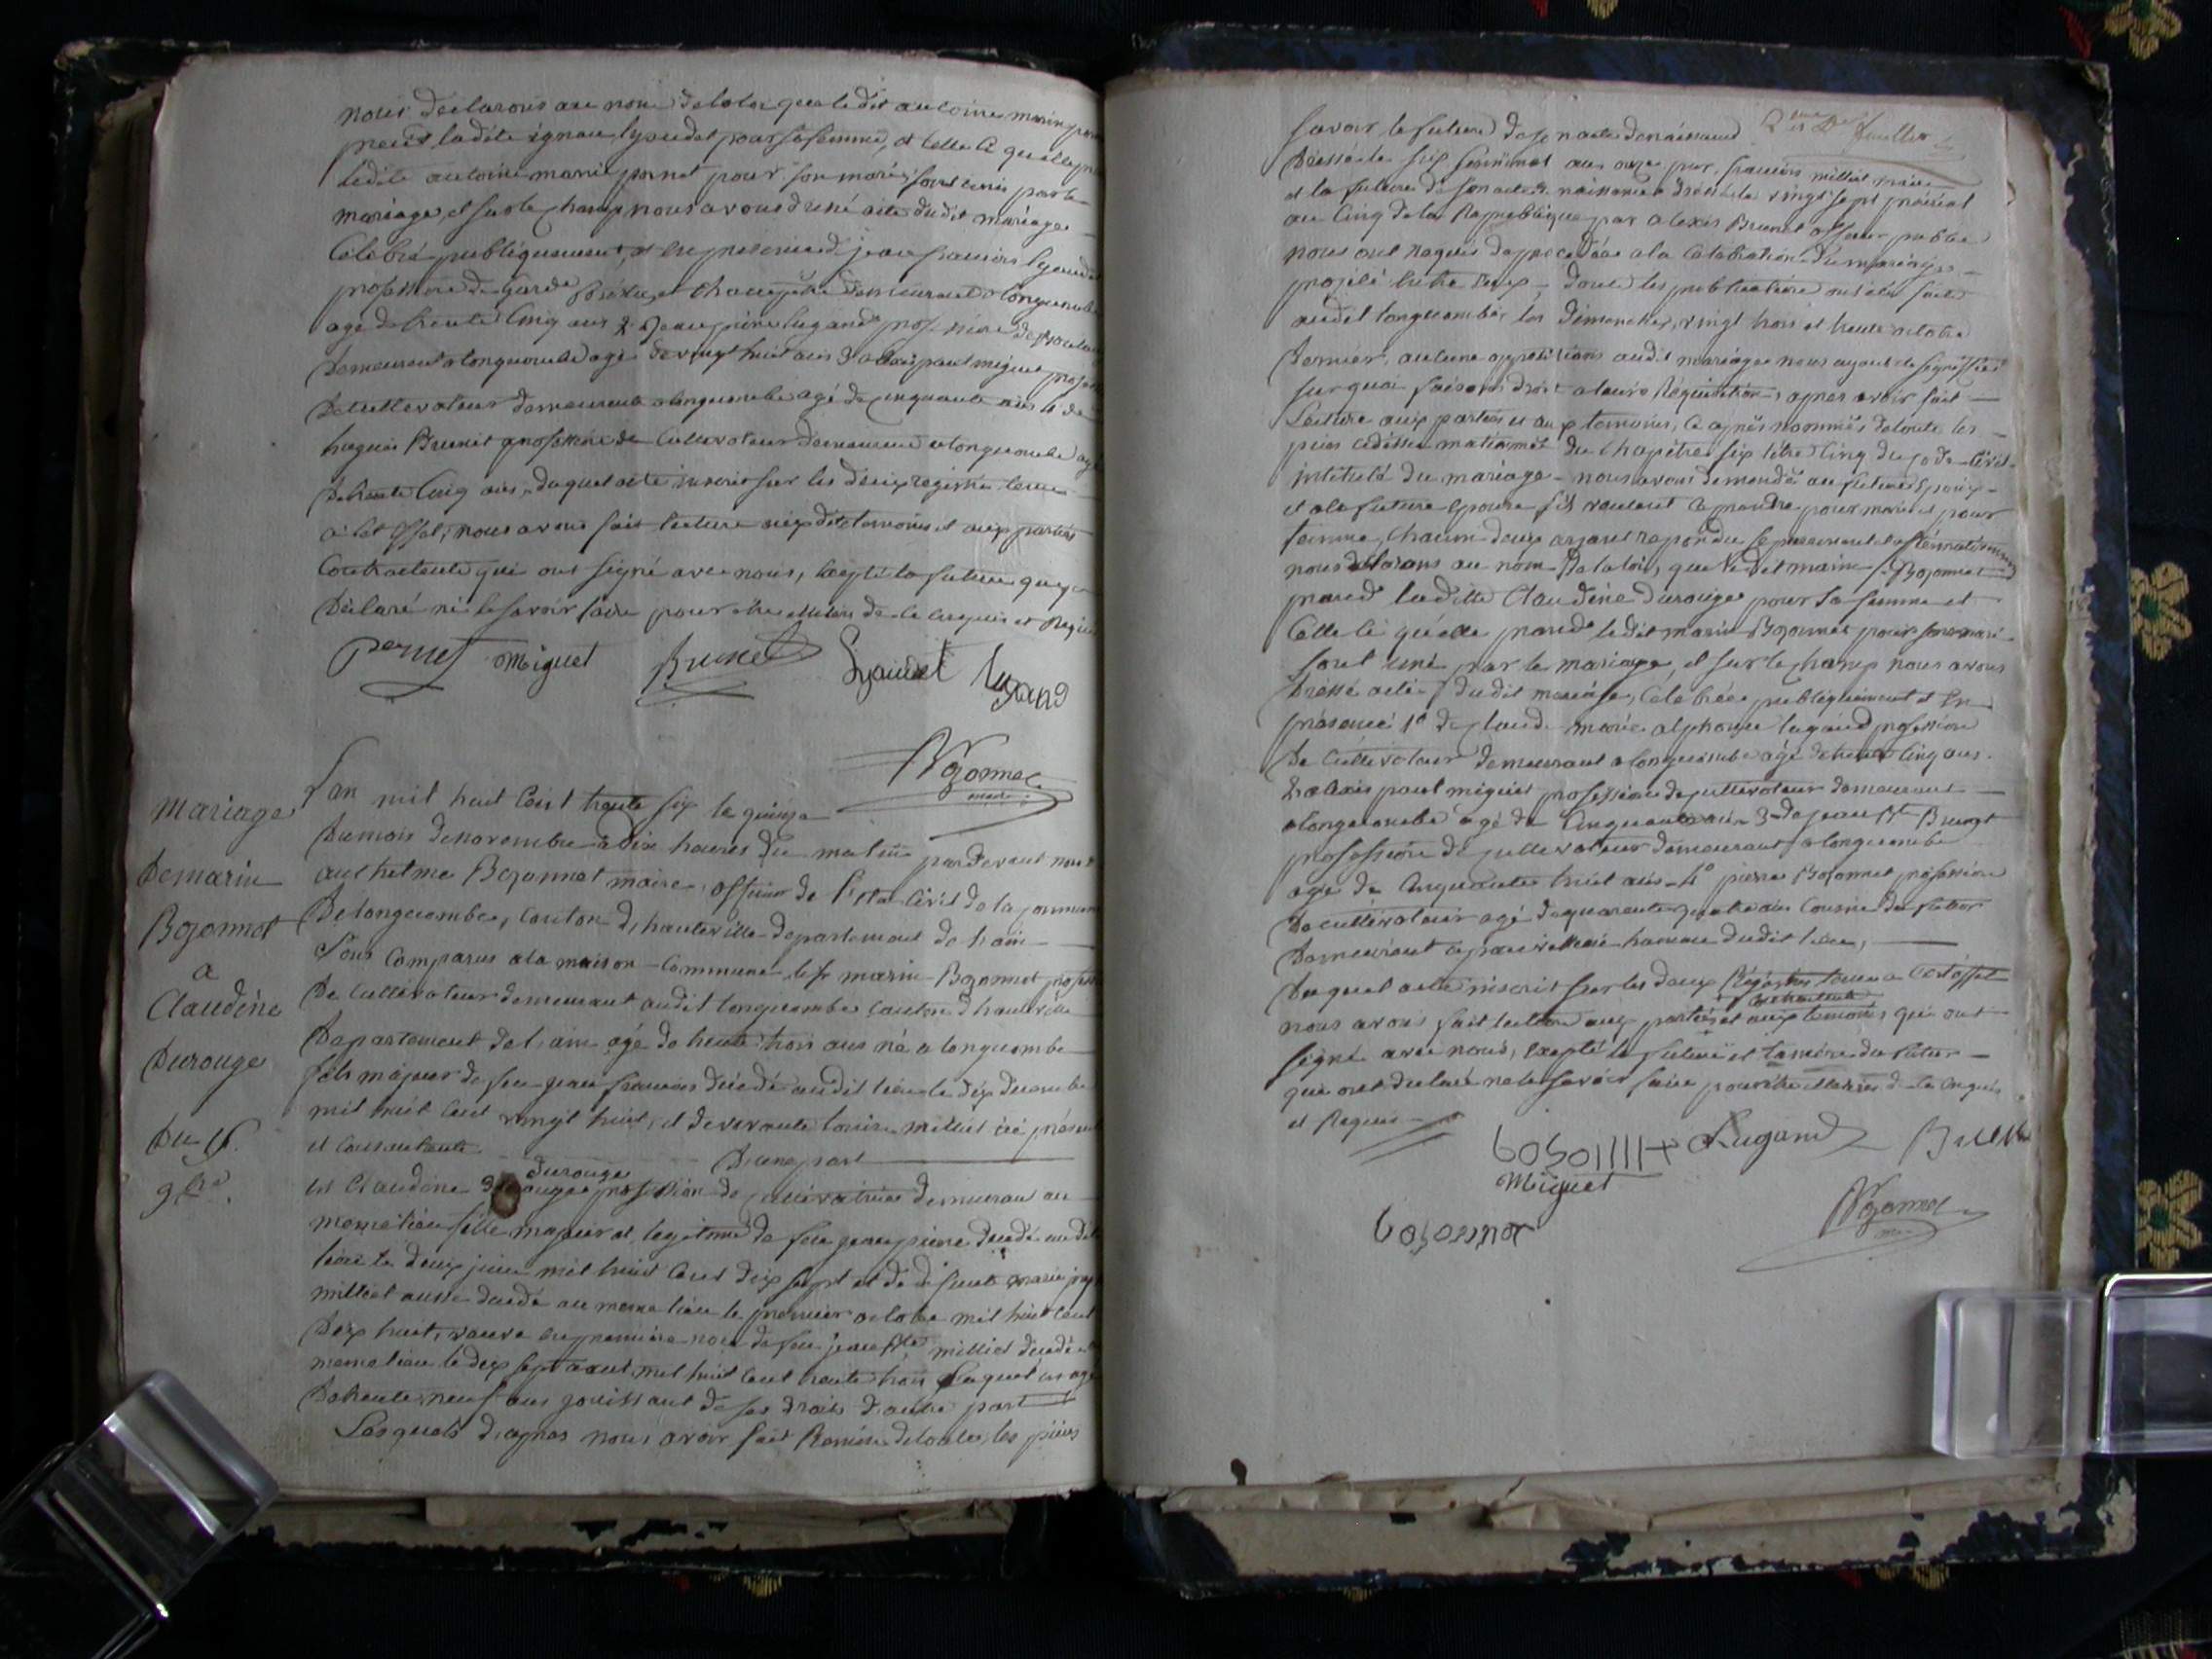 nous déclarons au nom de la loi que ledit antoine marie
prend ladite lyaudet pour sa femme, et celle ci quelle
ledite antoine marie pernet pour son mari, sont unis par le
mariage, et sur le champ nous avons dressé acte dudit mariage
Célébré publiquement, et en presence de jean francois lyaudet
profession de garde et champetre demeurant a longecombe
agé de trente Cinq ans 2 Jean pierre lugand profession de
demeurant a longecombe agé de vingt huit ans 3 alexis paul miguet
de cultivateur demeurant a longecombe agé de cinquante ans 4 de
Brunet profession de Cultivateur demeurant a longecombe agé
de trente Cinq ans, duquel acte inscrit sur les deux registre tenus
a cet effet, nous avons fait lecture aux dits temoins et aux parties
Contractante qui ont signé avec nous, excepté la future qui a
déclaré ne le savoir faire pour être de ce enquis et requis
Pernet Miguet Brunet Lyaudet Lugand
Bozonnet
maire
Mariage
De marin
Bozonnet
a
Claudine
Durouge
Du 15
9bre
L'an mil huit Cent trente six le quinze
Du mois de novembre a dix heures du matin pardevant nous
anthelme Bozonnet maire, officier de l'etat Civil de la Commune
De longecombe, Canton d'hauteville departement de l'ain
Sont Comparus a la maison Commune le sr marin Bozonnet
De Cultivateur demeurant audit longecombe Canton d'hauteville
Departement de l'ain agé de trente trois ans né a longecombe
fils majeur de feu jean francois décédé audit lieu le dix decembre
mil huit Cent vingt huit, et de vivante louise milliet ici présente
et Consentante D'une part
et Claudine durouge profession de cultivatrice demeurant au
meme lieu fille majeur et legitime de feu jean pierre decedé audit
lieu le deux juin mil huit Cent dix sept et de défunte marie
milliet aussi decedé au meme lieu le premier octobre mil huit Cent
Dix huit, veuve en premiere noce de feu jean Bte milliet decedé
meme lieu le dix sept aout mil huit Cent trente trois
De trente neuf ans jouissant de ses droits d'autre part
Lesquels d'apres nous avoir fait Remise de toutes les pièces
2eme et Dr feuillet
Savoir, le future de son acte de naissance
Dressé le six an onze par francois milliet maire
et la future de son acte de naissance dressé le vingt sept prairial
an Cinq de la Republique par alexis Brunet officier public
nous ont Requis de proceder a la Célébration du mariage
projeté entre eux, dont les publications ont été faite
audit longecombe, les dimanches, vingt trois et trente octobre
Dernier, aucune opposition audit mariage nous ayant été signiffiée
sur quoi faisant droit a leurs Réquisition, apres avoir fait
Lecture aux parties et aux temoins, Ci après nommés de toute les
pièces cidessus mationné du Chapitre six titre Cinq du Code Civil
intitulé du mariage nous avons demandé au future Epoux
et a la future epouse s'ils veulent ce prendre pour mari et pour
femme, Chacun deux ayant repondu separement et affirmativement
nous déclarons au nom De la loi, que le dit marin Bozonnet
prend ladite Claudine Durouge pour sa femme et
Celle Ci qu'elle prend le dit marin Bozonnet pour son mari
sont unis par le mariage, et sur le champ nous avons
Dréssé acte dudit mariage, Célébrée publiquement et En
présence 1º de Claude marie alphonse lugand profession
De Cultivateur demeurant a longecombe agé de trente Cinq ans
2 alexis paul miguet profession de Cultivateur demeurant
a longecombe agé de Cinquante ans 3 de jean Bte Brunet
profession de Cultivateur demeurant a longecombe
agé de Cinquante huit ans 4º pierre Bozonnet profession
De cultivateur agé de quarante quatre ans Cousin du futur
Demeurant a hameau dudit lieu,
Duquel acte inscrit sur les deux Régistre tenus a Cet effet
nous avons fait lecture aux parties contractante et aux temoins qui ont
signé avec nous, excepté la future et la mère du futur
qui ont declaré ne le savoir faire pour être de ce enquis
et Requis
Lugand Brunet
Miguet
bosonnot
Bozonnet